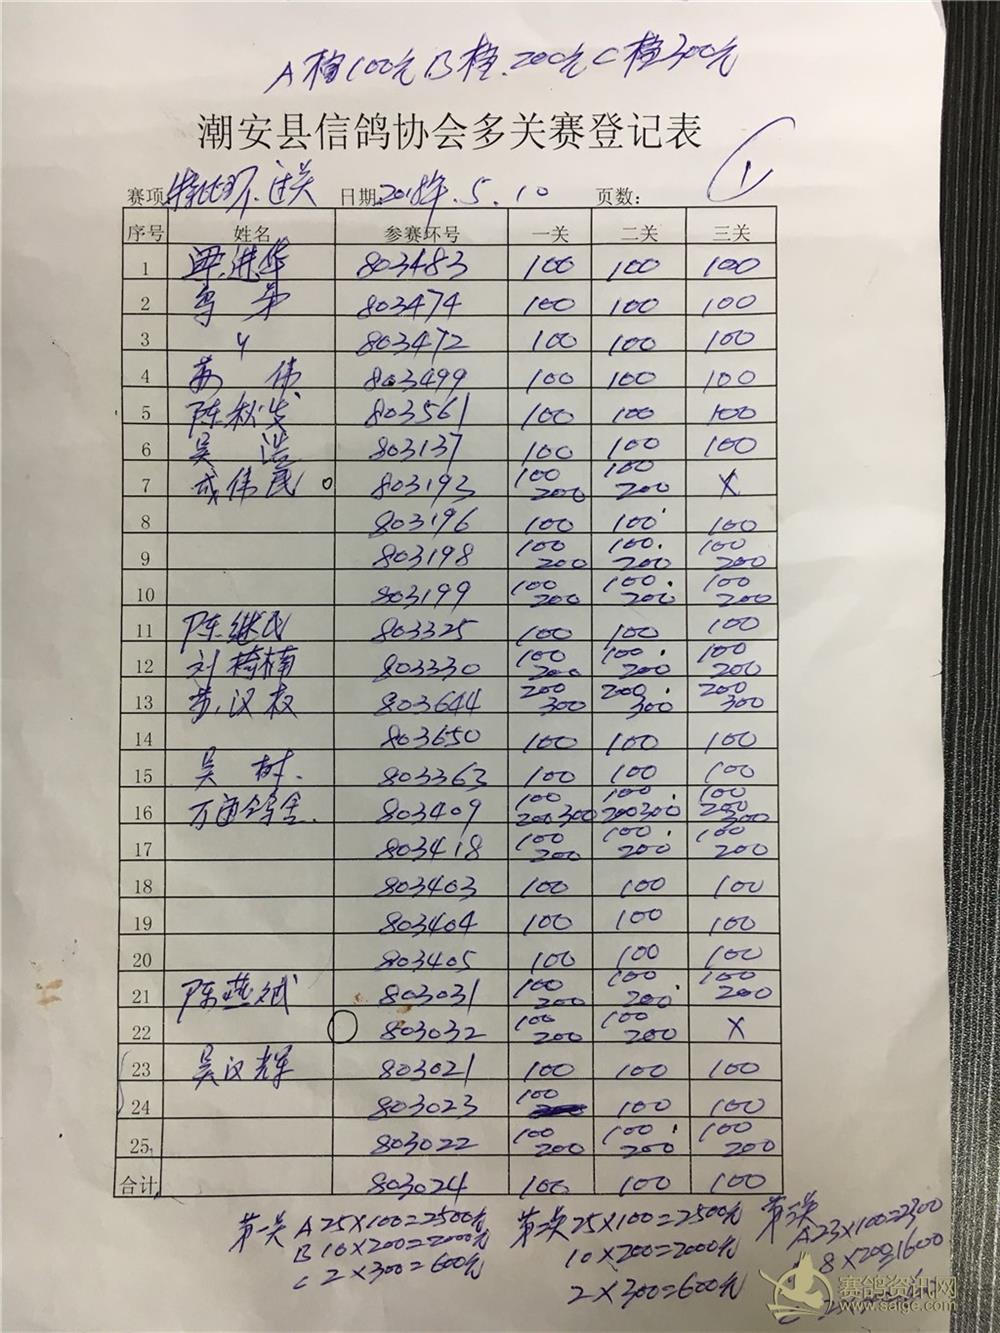 A档100元 B档200元 C档300元
潮安县信鸽协会多关赛登记表
1
赛项: 特比环 过关 日期: 2018年.5.10 页数:
序号 姓名 参赛环号 一关 二关 三关
1 梁进华 803483 100 100 100
2 803474 100 100 100
3 803472 100 100 100
4 伟 803499 100 100 100
5 陈秋发 803561 100 100 100
6 吴浩 803137 100 100 100
7 成伟民 803193 100 200 100 200 X
8 803196 100 100 100
9 803198 100 200 100 200 100 200
10 803199 100 200 100 200 100 200
11 陈继民 803325 100 100 100
12 刘楠 803330 100 200 100 200 100 200
13 汉枝 803644 200 300 200 300 200 300
14 803650 100 100 100
15 吴树 803363 100 100 100
16 万通鸽舍 803409 100 200 300 100 200 300 100 200 300
17 803418 100 200 100 200 100 200
18 803403 100 100 100
19 803404 100 100 100
20 803405 100 100 100
21 陈燕斌 803031 100 200 100 200 100 200
22 803032 100 200 100 200 X
23 吴汉辉 803021 100 100 100
24 803023 100 100 100
25 803022 100 200 100 200 100 200
合计 803024 100 100 100
第一关 A 25×100=2500元 第二关 25×100=2500元 第三关 A 23×100=2300
B 10×200=2000元 10×200=2000元 8×200=1600
C 2×300=600元 2×300=600元
赛鸽资讯网
www.saige.com